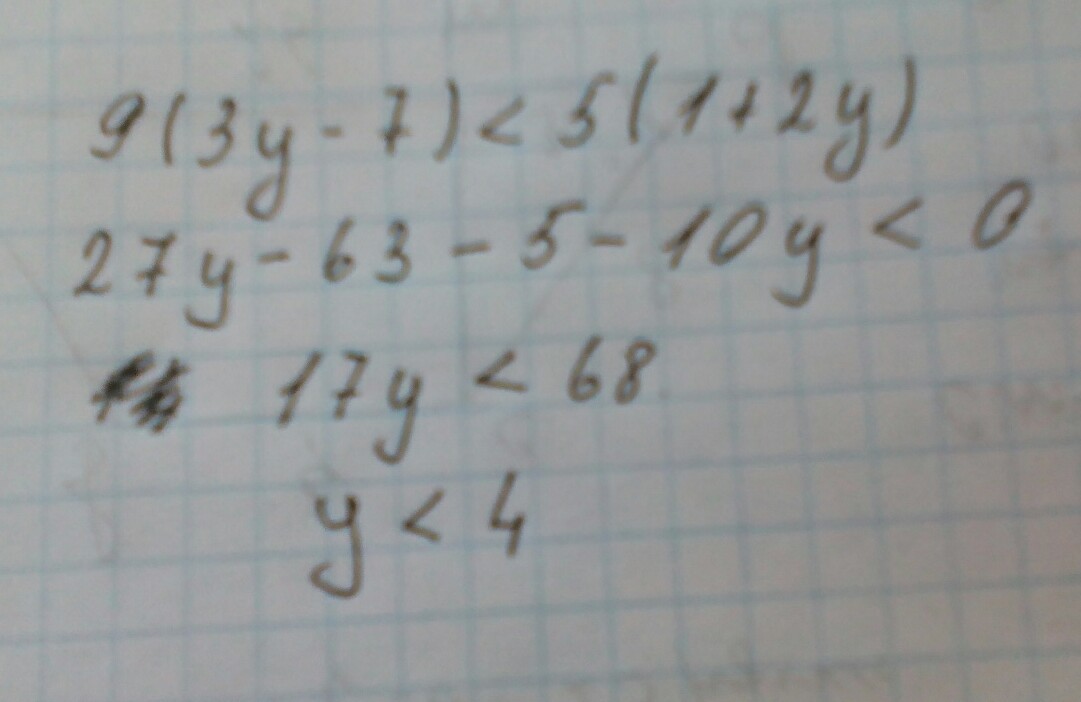 9(3y - 7) < 5(1+2y)
27y - 63 - 5 - 10y < 0
17y < 68
y < 4